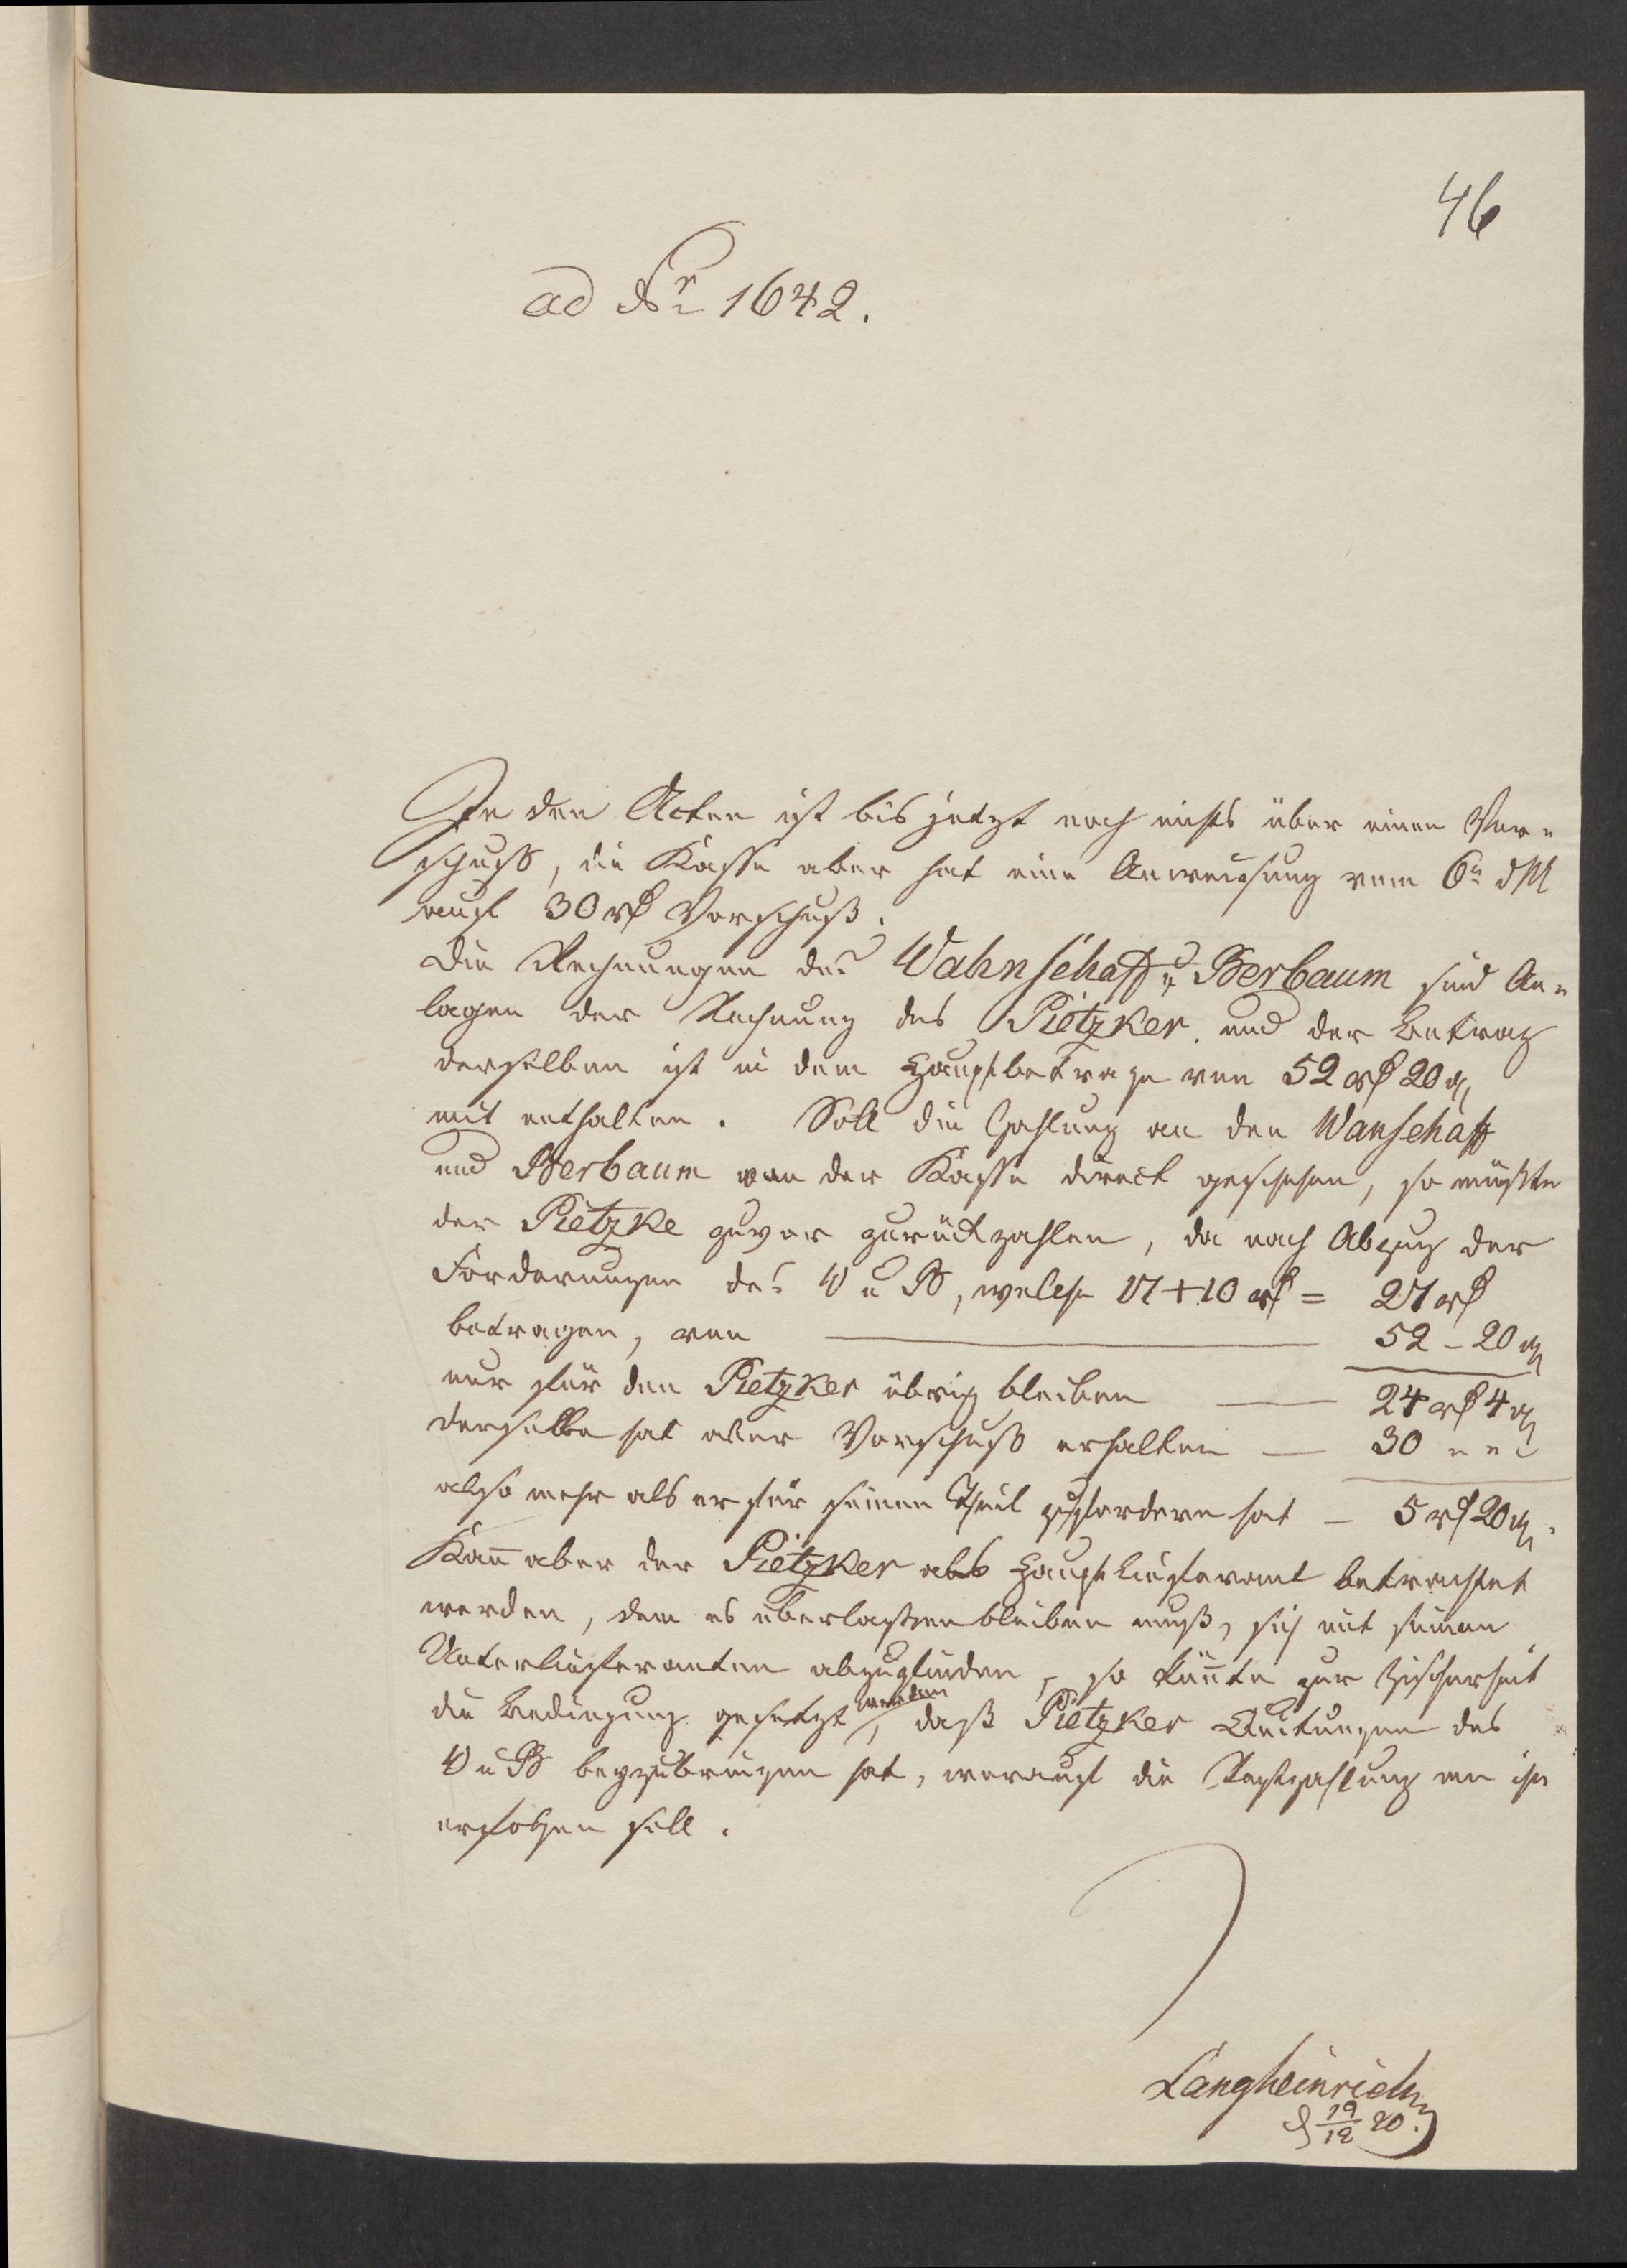 46
ad Nr 1642.
In den Acten ist bis jetzt noch nichts über einen Vor-
schuß, die Kasse aber hat eine Anweisung vom 6n d M
auf 30 rf Vorschuß.
Die Rechnungen des Wahnschaff u Berbaum sind An-
lagen der Rechnung des Pietzker und der Betrag
derselben ist in dem Hauptbetrage von 52 rf 20 g
mit enthalten. Soll die Zahlung an den Wanschaff
und Berbaum von der Kasse direct geschehen, so müßte
der Pietzke zuvor zurückzahlen, da nach Abzug der
Forderungen des W u B, welche 17 + 10 rf = 27 rf
betragen, von — 52 – 20 g
nur für den Pietzker übrig bleiben — 24 rf 4 g
derselbe hat aber Vorschuß erhalten — 30 " "
also mehr als er für seinen Theil zu fordern hat – 5 rf 20 g.
Kann aber der Pietzker als Hauptlieferant betrachtet
werden, dem es überlassen bleiben muß, sich mit seinen
Unterlieferanten abzufinden, so könnte zur Sicherheit
die Bedingung gesetzt werden, daß Pietzker Quitungen des
W u B beyzubringen hat, worauf die Restzahlung an ihn
erfolgen soll.
Langheinrich
d 19/12 20.